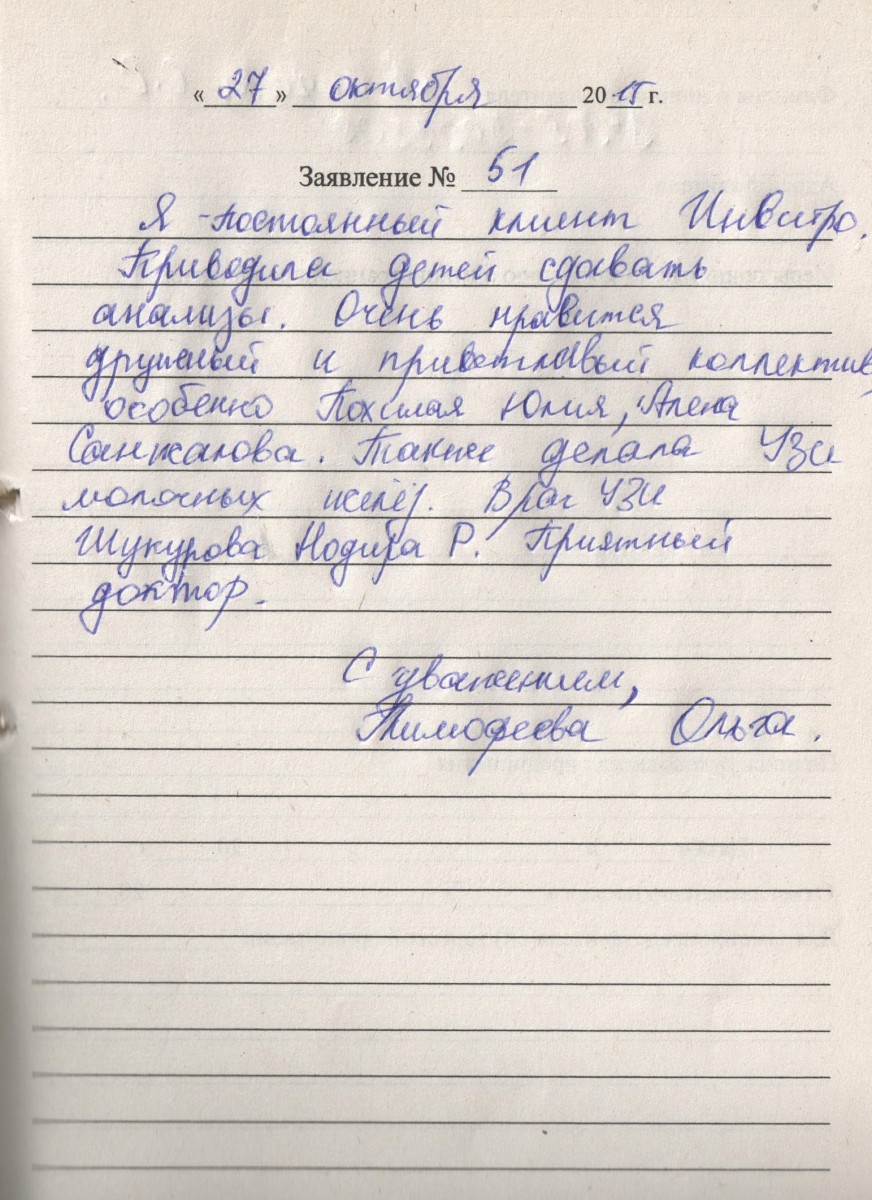 « 27 » октября 2015 г.
Заявление № 51
Я - постоянный клиент Инвитро.
Приводила детей сдавать
анализы. Очень нравится
дружный и приветливый коллектив,
особенно Похилая Юлия, Алена
Санжарова. Также делала УЗИ
молочных желёз. Врач УЗИ
Шукурова Нодира Р. Приятный
доктор.
С уважением,
Тимофеева Ольга.